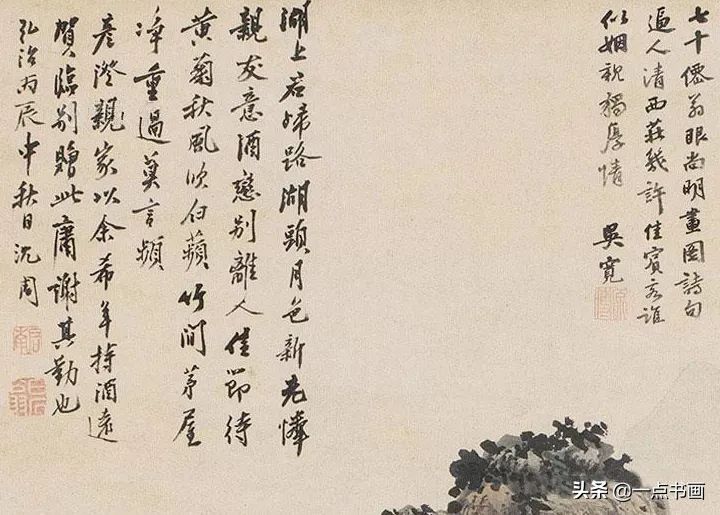 七十僊翁眼尚明畫圖詩句
逼人清西莊幾許佳賓客誰
似姻親獨厚情
吳寬
湖上君歸路湖頭月色新老憐
親友意酒戀別離人佳節待
黃菊秋風吹白蘋竹間茅屋
淨重過莫言頻
彥澄親家以余希年持酒遠
賀臨別贈此庸謝其勤也
弘治丙辰中秋日沈周
头条 @一点书画